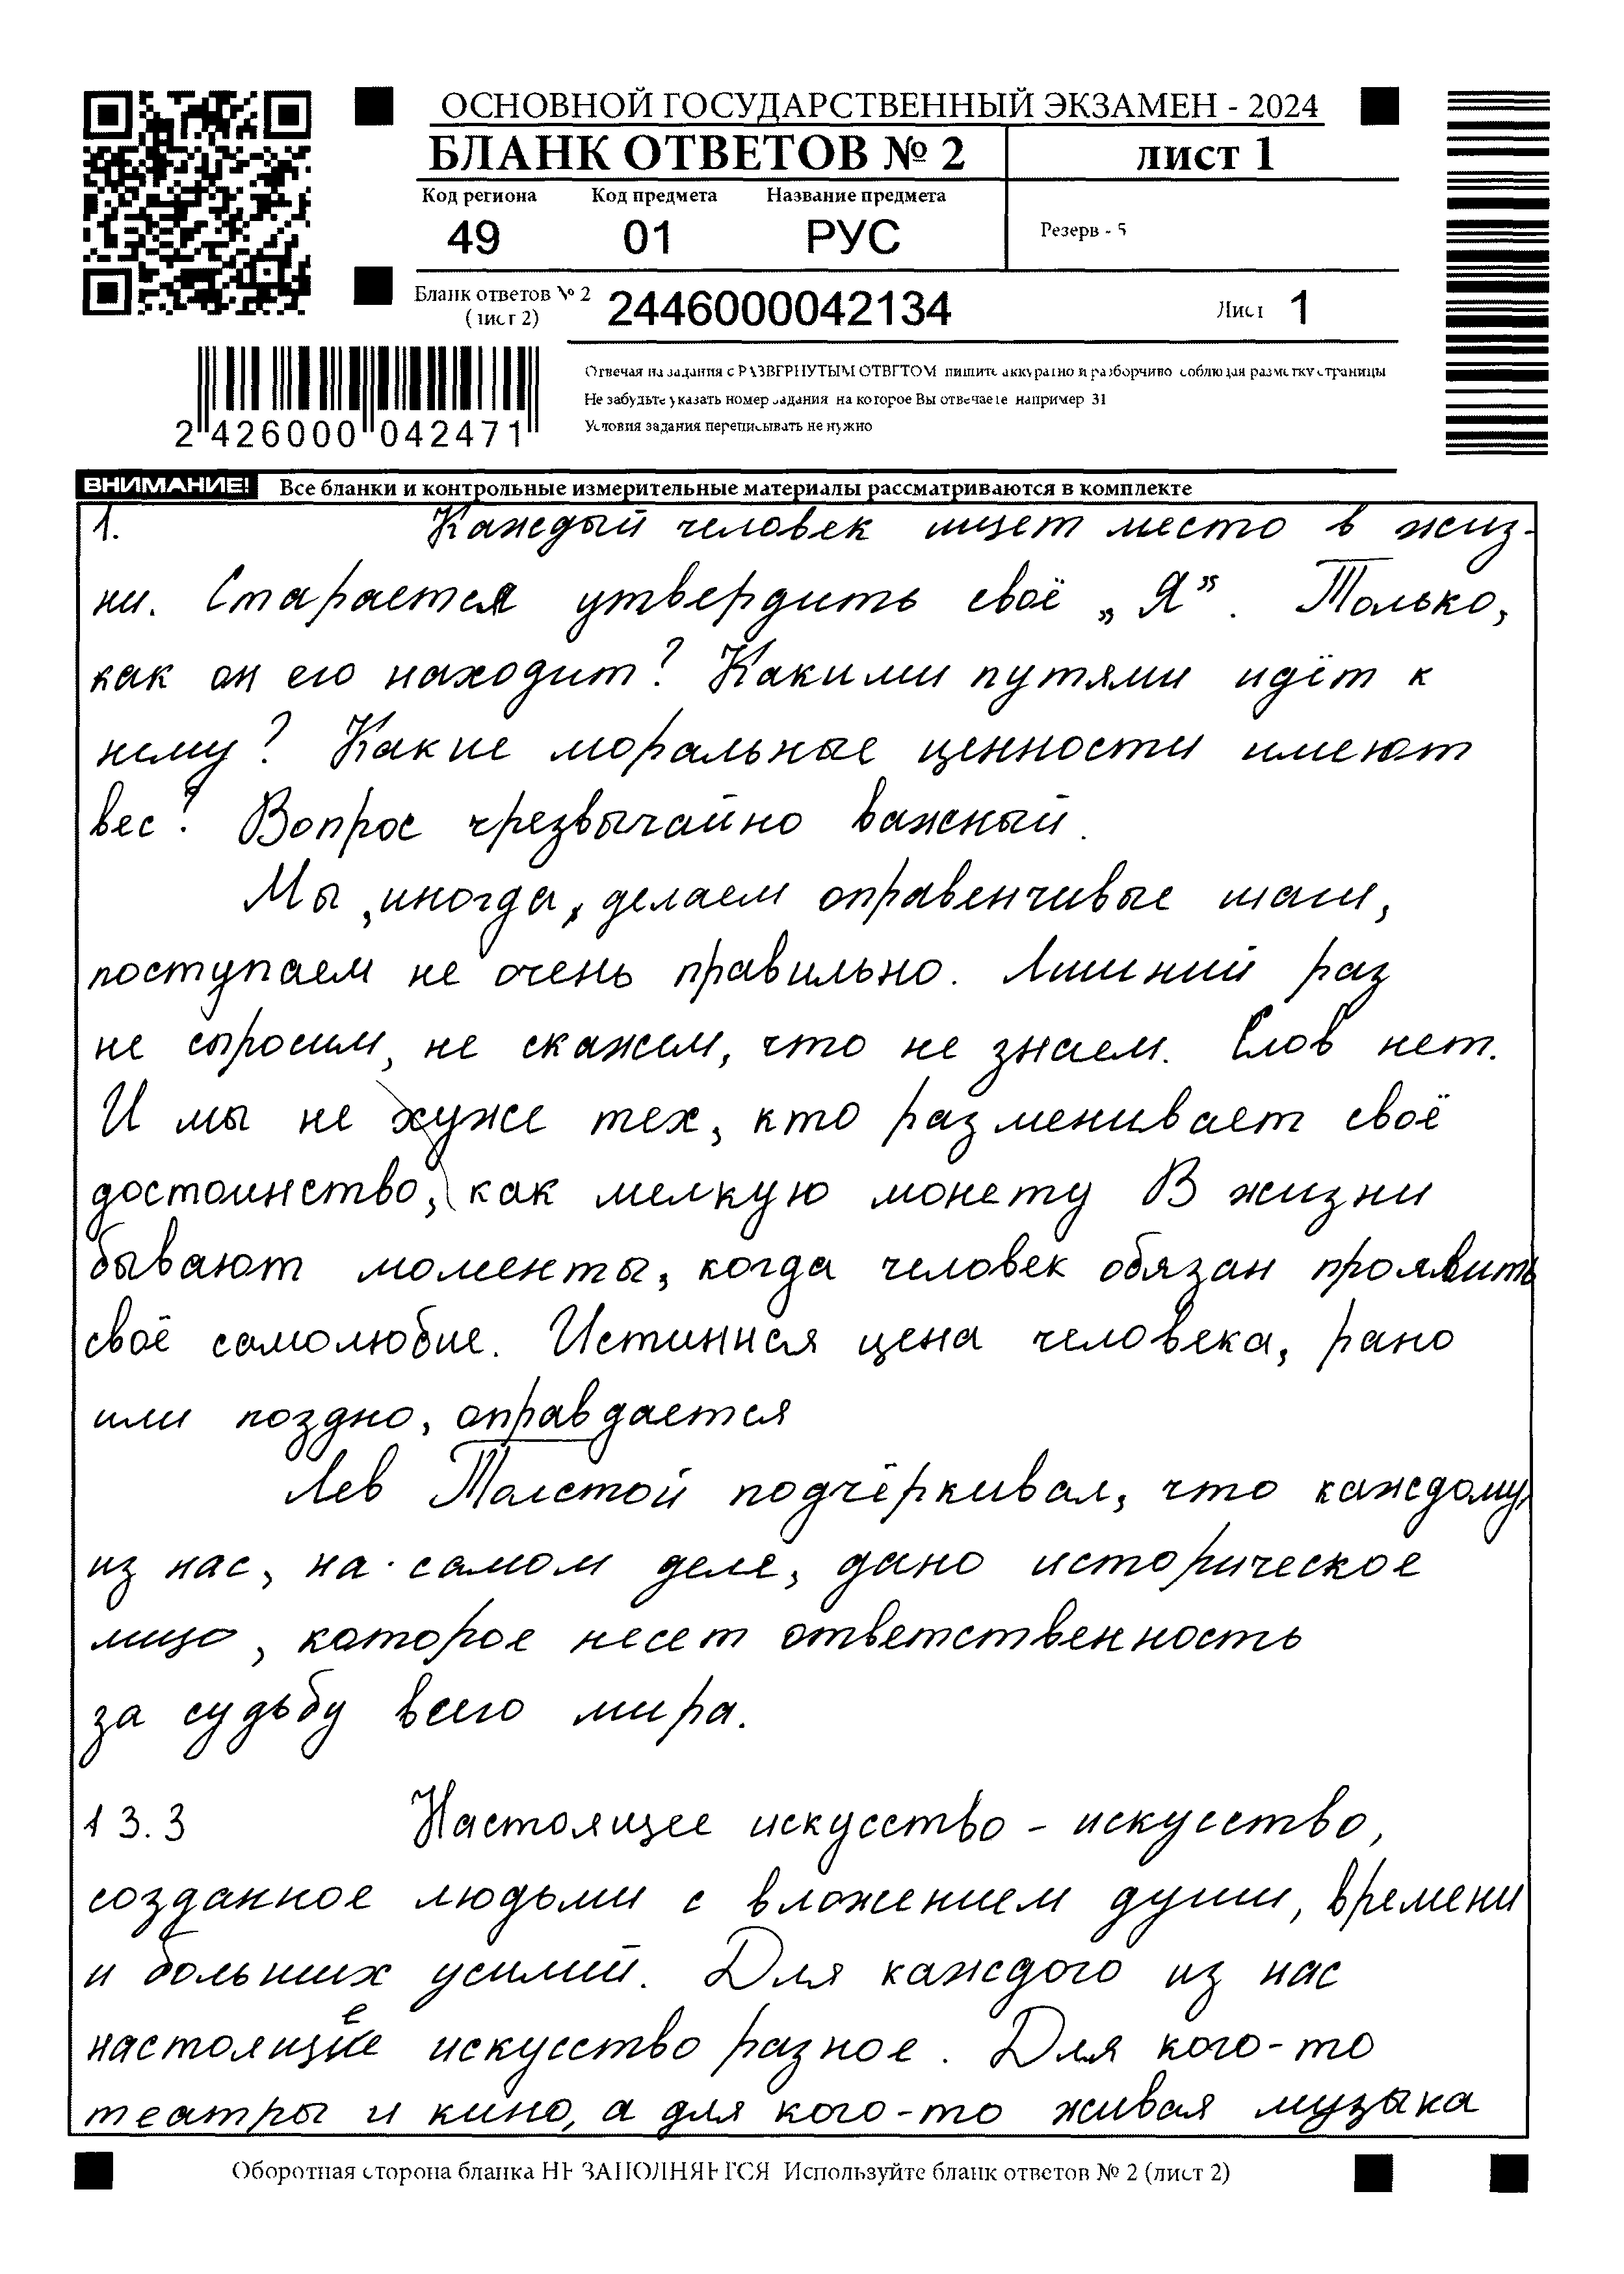 ОСНОВНОЙ ГОСУДАРСТВЕННЫЙ ЭКЗАМЕН - 2024
БЛАНК ОТВЕТОВ № 2
ЛИСТ 1
Код региона Код предмета Название предмета
49 01 РУС
Резерв - 5
Бланк ответов № 2 (лист 2) 2446000042134
Лист 1
2 426000 042471
Отвечая на задания с РАЗВЕРНУТЫМ ОТВЕТОМ пишите аккуратно и разборчиво соблюдая разметку страницы
Не забудьте указать номер задания на которое Вы отвечаете например 31
Условия задания переписывать не нужно
ВНИМАНИЕ! Все бланки и контрольные измерительные материалы рассматриваются в комплекте
1. Каждый человек ищет место в жиз-
ни. Старается утвердить своё „Я”. Только,
как он его находит? Какими путями идёт к
нему? Какие моральные ценности имеют
вес? Вопрос чрезвычайно важный.
Мы, иногда, делаем оправенчивые шаги,
поступаем не очень правильно. Лишний раз
не спросим, не скажем, что не знаем. Слов нет.
И мы не хуже тех, кто разменивает своё
достоинство, как мелкую монету В жизни
бывают моменты, когда человек обязан проявить
своё самолюбие. Истинная цена человека, рано
или поздно, оправдается
Лев Толстой подчёркивал, что каждому
из нас, на самом деле, дано историческое
лицо, которое несет ответственность
за судьбу всего мира.
13.3 Настоящее искусство - искусство,
созданное людьми с вложением души, времени
и больших усилий. Для каждого из нас
настоящее искусство разное. Для кого-то
театры и кино, а для кого-то живая музыка
Оборотная сторона бланка НЕ ЗАПОЛНЯЕТСЯ Используйте бланк ответов № 2 (лист 2)